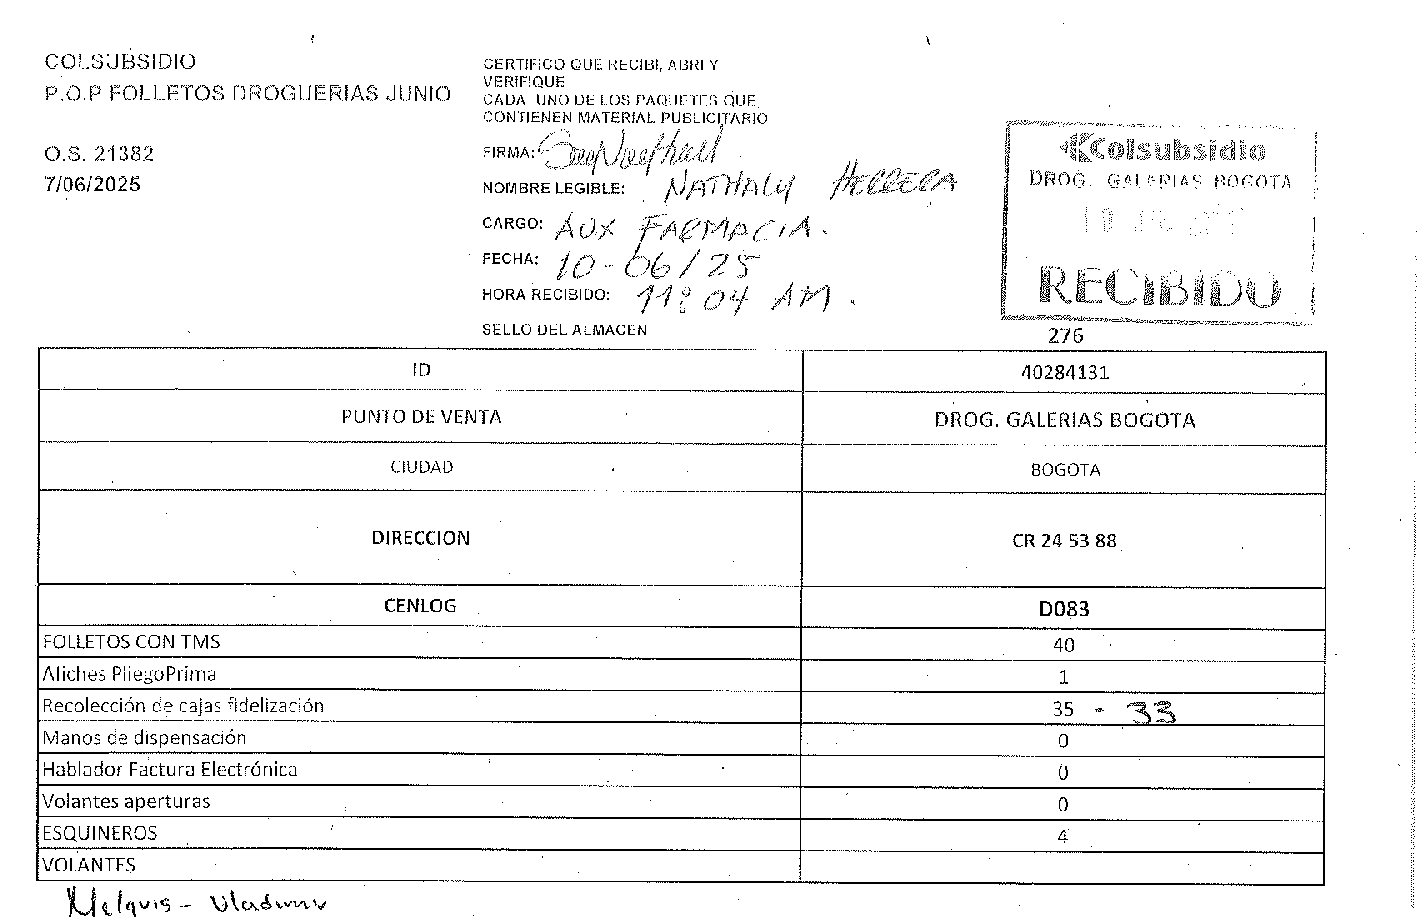 COLSUBSIDIO
P.O.P FOLLETOS DROGUERIAS JUNIO
O.S. 21382
7/06/2025
CERTIFICO QUE RECIBI, ABRI Y
VERIFIQUE
CADA UNO DE LOS PAQUETES QUE
CONTIENEN MATERIAL PUBLICITARIO
FIRMA:
NOMBRE LEGIBLE: NATHALY HERRERA
CARGO: AUX FARMACIA.
FECHA: 10-06/25
HORA RECIBIDO: 11:04 AM.
SELLO DEL ALMACEN
Colsubsidio
DROG. GALERIAS BOGOTA
RECIBIDO
276
ID 40284131
PUNTO DE VENTA DROG. GALERIAS BOGOTA
CIUDAD BOGOTA
DIRECCION CR 24 53 88
CENLOG D083
FOLLETOS CON TMS 40
Afiches PliegoPrima 1
Recolección de cajas fidelización 35 - 33
Manos de dispensación 0
Hablador Factura Electrónica 0
Volantes aperturas 0
ESQUINEROS 4
VOLANTES
Melquis -